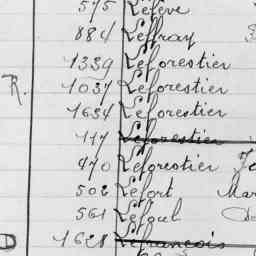 575 Lefève
884 Leffray
1339 Leforestier
R. 1037 Leforestier
1634 Leforestier
117 Leforestier
470 Leforestier
502 Lefort Mar
561 Lefoul
D 1628 Lefrancois